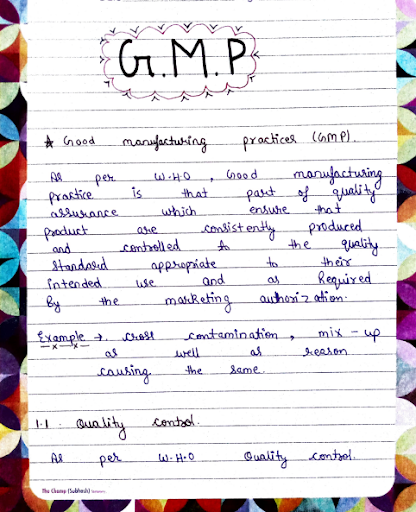 G.M.P
★ Good manufacturing practices (GMP).
As per W.H.O, Good manyfacturing
practice is that part of quality
assurance which ensure that
product are consistently produced
and controlled to the quality
standard appropriate to their
intended use and as Required
By the marketing authorization.
Example → cross contamination, mix-up
as well as reason
causing the same.
1.1. Quality control.
As per W.H.O Quality control.
The Champ (Subhash)